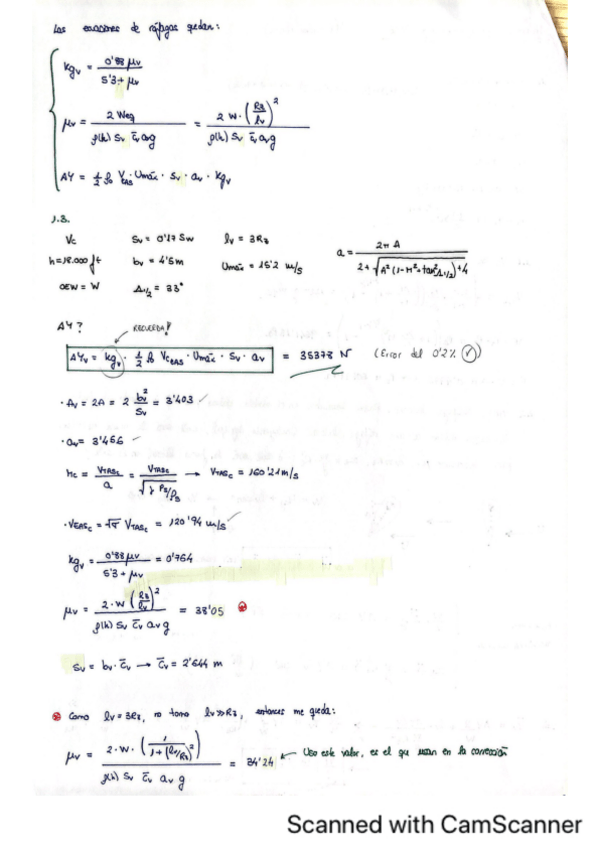 Las ecuaciones de ráfagas quedan:
Kg_v = 0'88 μ_v / (5'3 + μ_v)
μ_v = 2 W_eq / (ρ(h) S_v c̄_v a_v g) = 2 W · (R_z / l_v)² / (ρ(h) S_v c̄_v a_v g)
ΔY = 1/2 ρ₀ V_EAS · U_máx · S_v · a_v · Kg_v
1.3.
V_c S_v = 0'17 S_w l_v = 3R_z
h = 18.000 ft b_v = 4'5m U_máx = 15'2 m/s a = 2π A / (2 + √(A² (1 - M² + tan² Λ_1/2) + 4))
OEW = W Λ_1/2 = 33°
ΔY? RECUERDA!
ΔY_v = kg_v · 1/2 ρ₀ V_CEAS · U_máx · S_v · a_v = 35378 N (Error del 0'2% ✓)
· A_v = 2A = 2 b_v² / S_v = 3'403 ✓
· a_v = 3'466 ✓
M_c = V_TASc / a = V_TASc / √(γ P_a/ρ_a) → V_TASc = 160'21 m/s
· V_EASc = √σ V_TASc = 120'94 m/s ✓
Kg_v = 0'88 μ_v / (5'3 + μ_v) = 0'764
μ_v = 2 · W (R_z / l_v)² / (ρ(h) S_v c̄_v a_v g) = 38'05 ⊛
S_v = b_v · c̄_v → c̄_v = 2'644 m
⊛ Como l_v = 3R_z, no tomo l_v >> R_z, entonces me queda:
μ_v = 2 · W · (1 / (1 + (l_v/R_z)²)) / (ρ(h) S_v c̄_v a_v g) = 34'24 ← Uso este valor, es el que usan en la corrección
Scanned with CamScanner